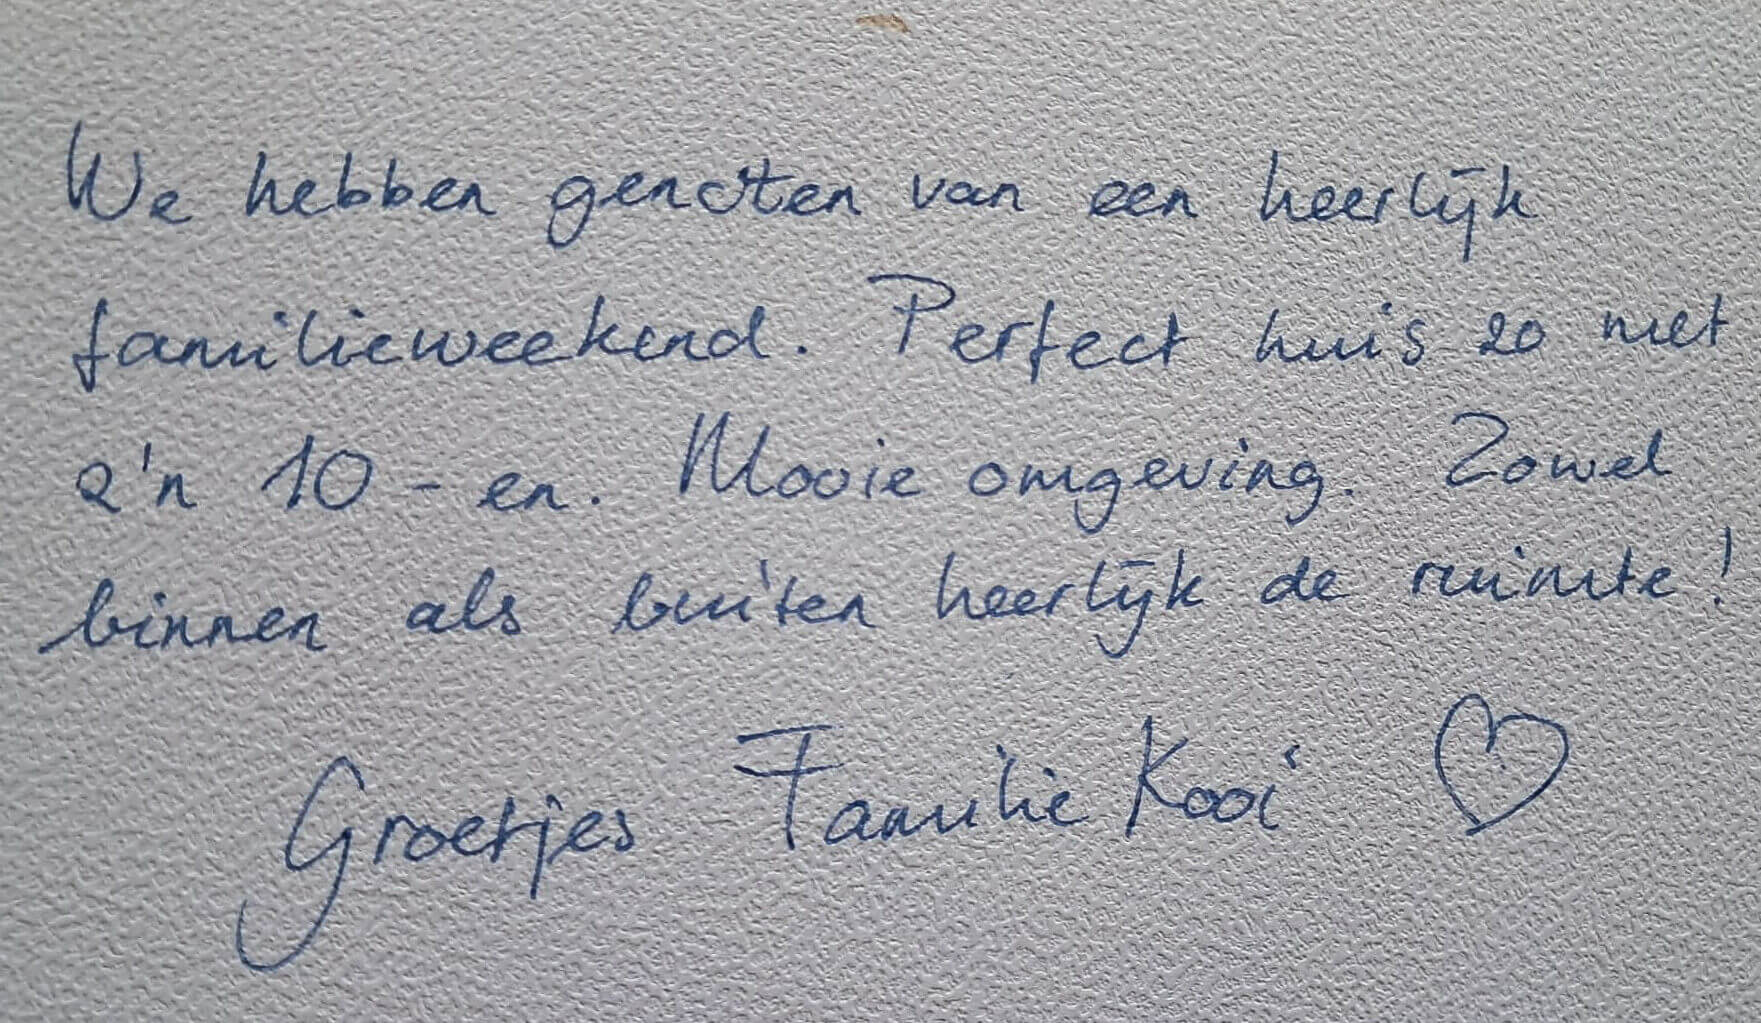 We hebben genoten van een heerlijk
familieweekend. Perfect huis zo met
z'n 10-en. Mooie omgeving. Zowel
binnen als buiten heerlijk de ruimte!
Groetjes Familie Kooi ♡